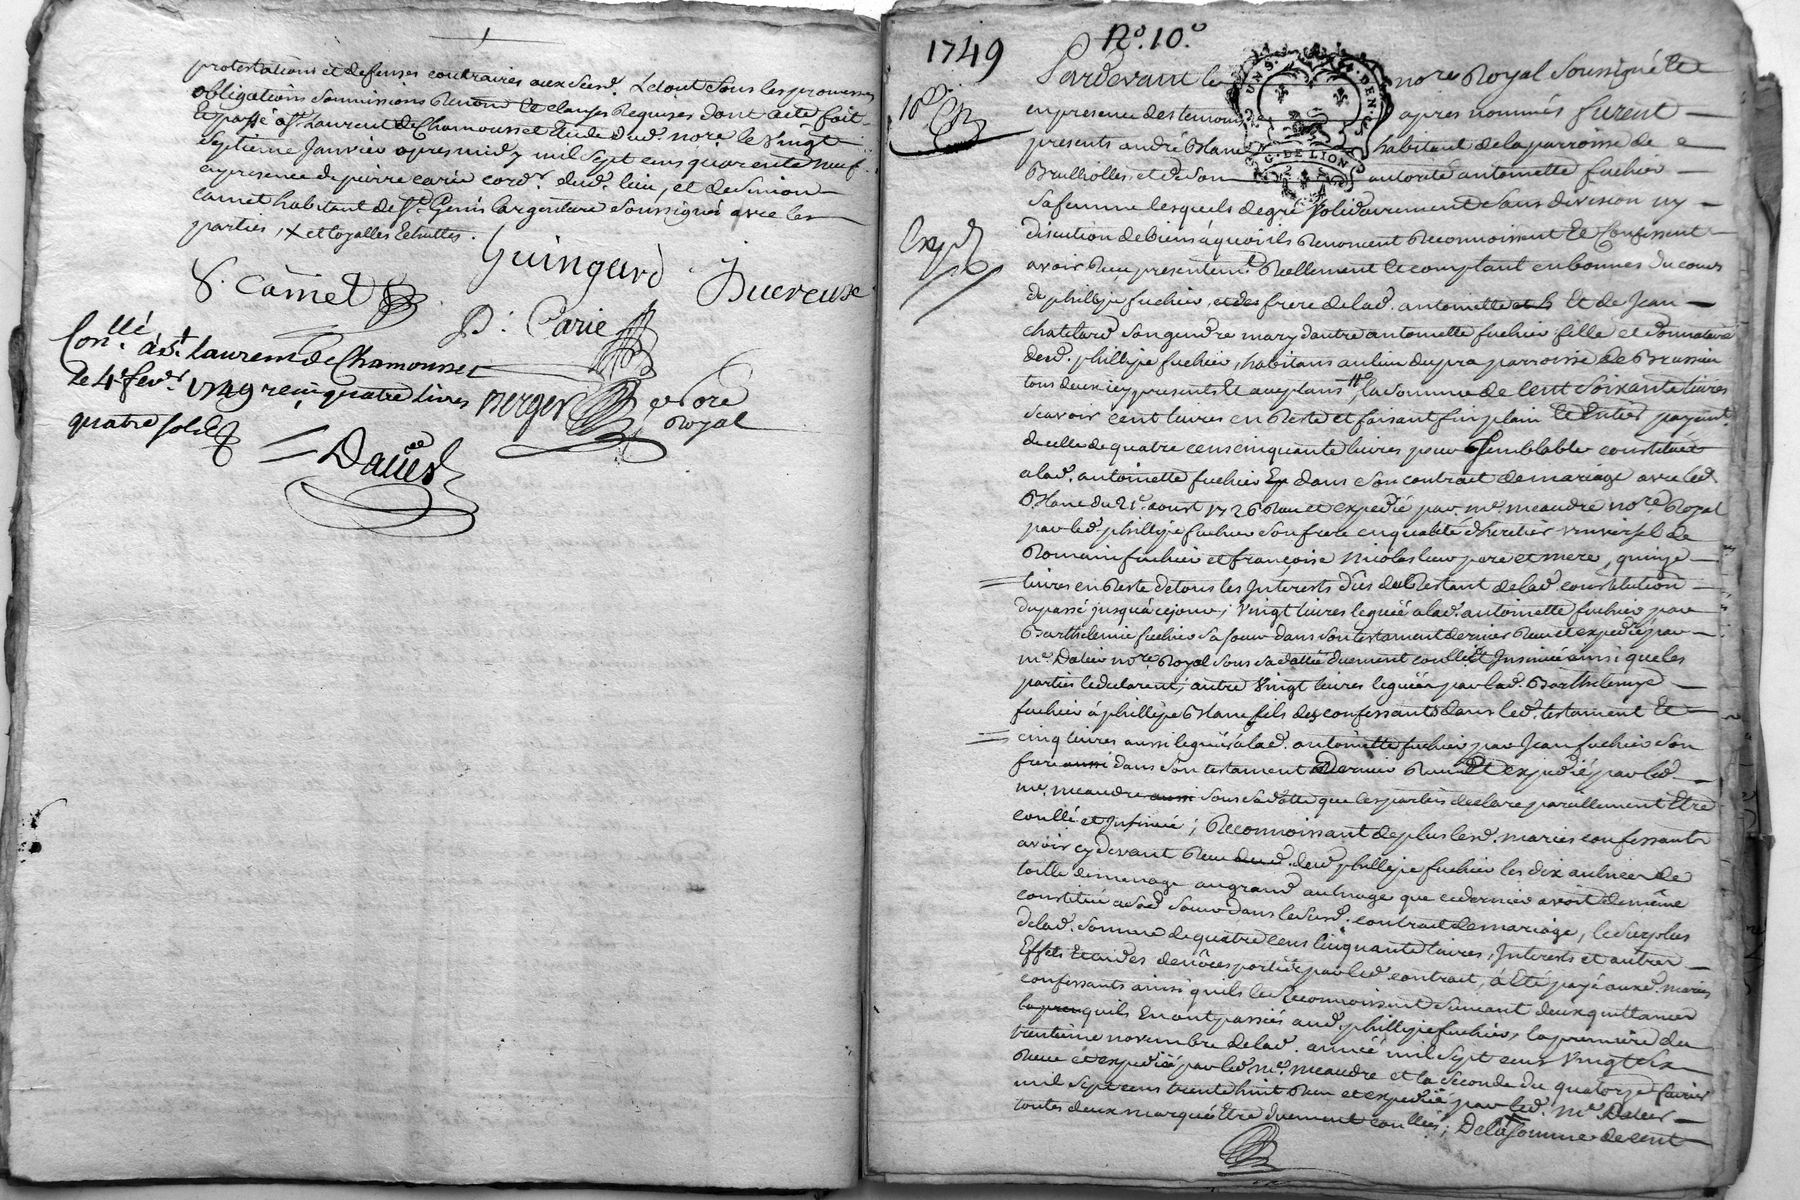 protestations et defenses contraires aux susd. Le tout sous les promesses
obligations soumissions Renon et clauses Requises dont acte fait
et passé a St. Laurent de Chamousset Etude dud. nore. le Vingt
septieme Janvier apres midy mil sept cens quarente neuf
en presence de pierre carie cordr. dud. lieu, et de Simon
camet habitant de St. Genis l'argentiere soussignés avec les
parties,
S. Camet
Guingard
Ducreux
P. Carie
Conllé. à St. Laurent de Chamousset
le 4e. fevr. 1749 reçu quatre livres
quatre sols
merger
nore
Royal
1749
No. 10.
Pardevant le nore Royal Soussigné Et
en presence des temoins apres nommés furent
presents andré Blanc habitant de la parroisse de
Brulliolles et de son autorité antoinette fuchier
sa femme lesquels de gré solidairement sans division ny
discution de biens à quoi ils Renoncent Reconnoissent Et Confessent
avoir Reçu presentemt. Reellement et comptant en bonnes du cours
de phillipe fuchier, frere de lad. antoinette Et de Jean
chatelard son gendre mary d'autre antoinette fuchier fille et donnataire
dud. phillipe fuchier, habitans au lieu du pra parroisse de Brussieu
tous deux icy presents Et aceptans, la somme de cent soixante livres
scavoir cent livres en Reste et faisant fin plain Et Entier payemt.
de celle de quatre cens cinquante livres pour semblable constituée
a lad. antoinette fuchier dans son contrat de mariage avec led.
Blanc du aoust 1726 Reçu et expedié par me. meaudre nore. Royal
par led. phillipe fuchier son frere en qualité d'heritier universel de
Romain fuchier et françoise Nicolas leur pere et mere, quinze
livres en Reste de tous les Interests dus du Restant de lad. constitution
du passé jusqu'à ce jour; Vingt livres leguée a lad. antoinette fuchier par
Barthelemie fuchier sa soeur dans son testament dernier Reçu et expedié par
me. nore. Royal sous sa datte duement conllé Et Insinué ainsi que les
parties le declarent; autre Vingt livres leguées par lad. Barthelemye
fuchier à phillipe Blanc fils des confessants dans led. testament Et
cinq livres aussi leguées à lad. antoinette fuchier par Jean fuchier son
frere aussi dans son testament dernier Reçu Et expedié par led.
me. meaudre aussi sous sa datte que les parties declare pareillement Etre
conllé et Insinué; Reconnoissant de plus lesd. maries confessants
avoir cy devant Reçu dud. phillipe fuchier les dix aulnes de
toille de menage au grand aulnage que ce dernier avoit de même
constitué a sad. soeur dans le susd. contrat de mariage, le surplus
de lad. somme de quatre cens cinquante livres, Interests et autres
Effets portés par led. contrat, à Eté payé auxd. maries
confessants ainsi qu'ils le Reconnoissent suivant deux quittances
qu'ils En ont passées aud. phillipe fuchier, la premiere du
trentieme novembre de lad. année mil sept cens vingt six
Reçue et expediée par led. me. meaudre et la seconde du quatorze fevrier
mil sept cens trente huit Reçu et expediée par led. me.
toutes deux marquée Etre duement conllées; De la somme de cent